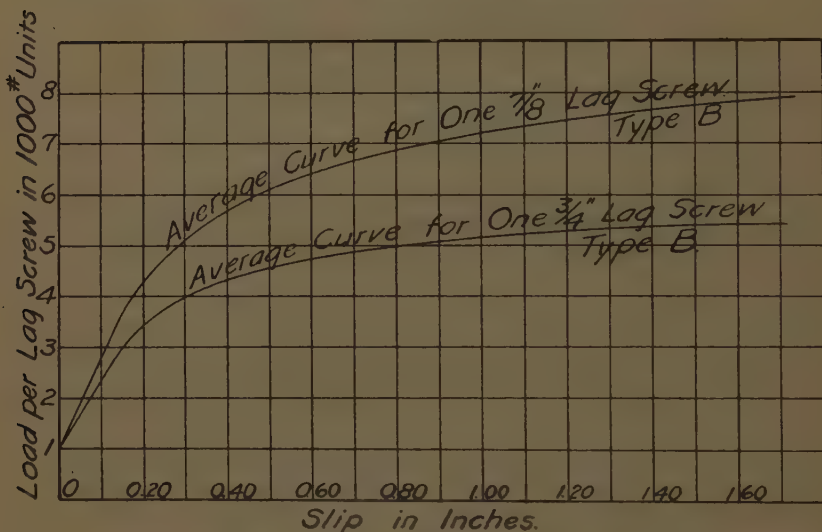 Load per Lag Screw in 1000# Units
8
7
6
5
4
3
2
1
Average Curve for One 7/8" Lag Screw
Type B
Average Curve for One 3/4" Lag Screw
Type B.
0 0.20 0.40 0.60 0.80 1.00 1.20 1.40 1.60
Slip in Inches.